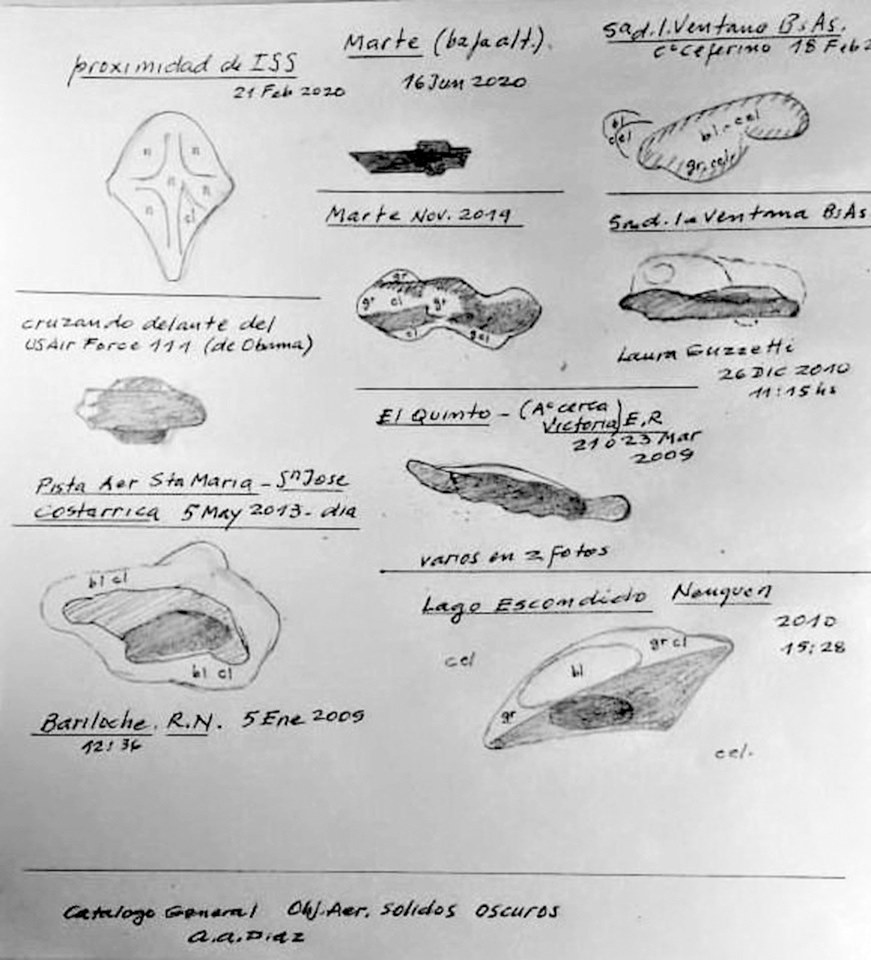 proximidad de ISS
21 Feb 2020
n n
n n
n cl
cruzando delante del
USAir Force 111 (de Obama)
Pista Aer Sta Maria - Sn Jose
Costarrica 5 May 2013 - dia
bl cl
bl cl
Bariloche. R.N. 5 Ene 2009
12:36
Marte (baja alt.).
16 Jun 2020
Marte Nov. 2019
gr
gr cl gr
cl
g cl
El Quinto - (Aº cerca Victoria) E.R
21 ó 23 Mar
2009
varios en 2 fotos
Sad.l.Ventana BsAs.
Cº Ceferino 18 Feb 2
bl
cel
bl-cel
gr.cel
Sad. la Ventana BsAs
Laura Guzzetti
26 DIC 2010
11:15 hs
Lago Escondido Neuquen
2010
15:28
cel
gr cl
bl
gr
cel.
Catalogo General Obj. Aer. solidos oscuros
A.A.Diaz